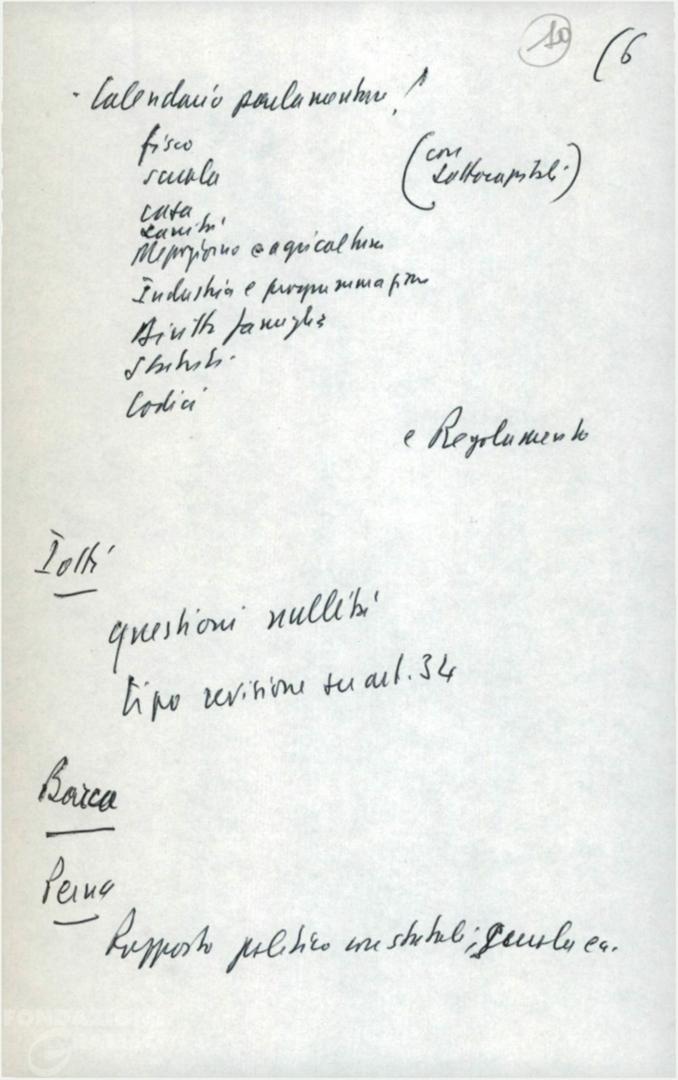 10 (6
- Calendario parlamentare!
fisco
scuola
(con sottocapitoli)
casa
sanità
Mezzogiorno e agricoltura
Industria e programmazione
Diritto famiglia
Statali
Codici
e Regolamento
Iotti
questioni nullità
tipo revisione su art. 34
Barca
Perna
Rapporto politico con statali; scuola ca.
FONDAZIONE